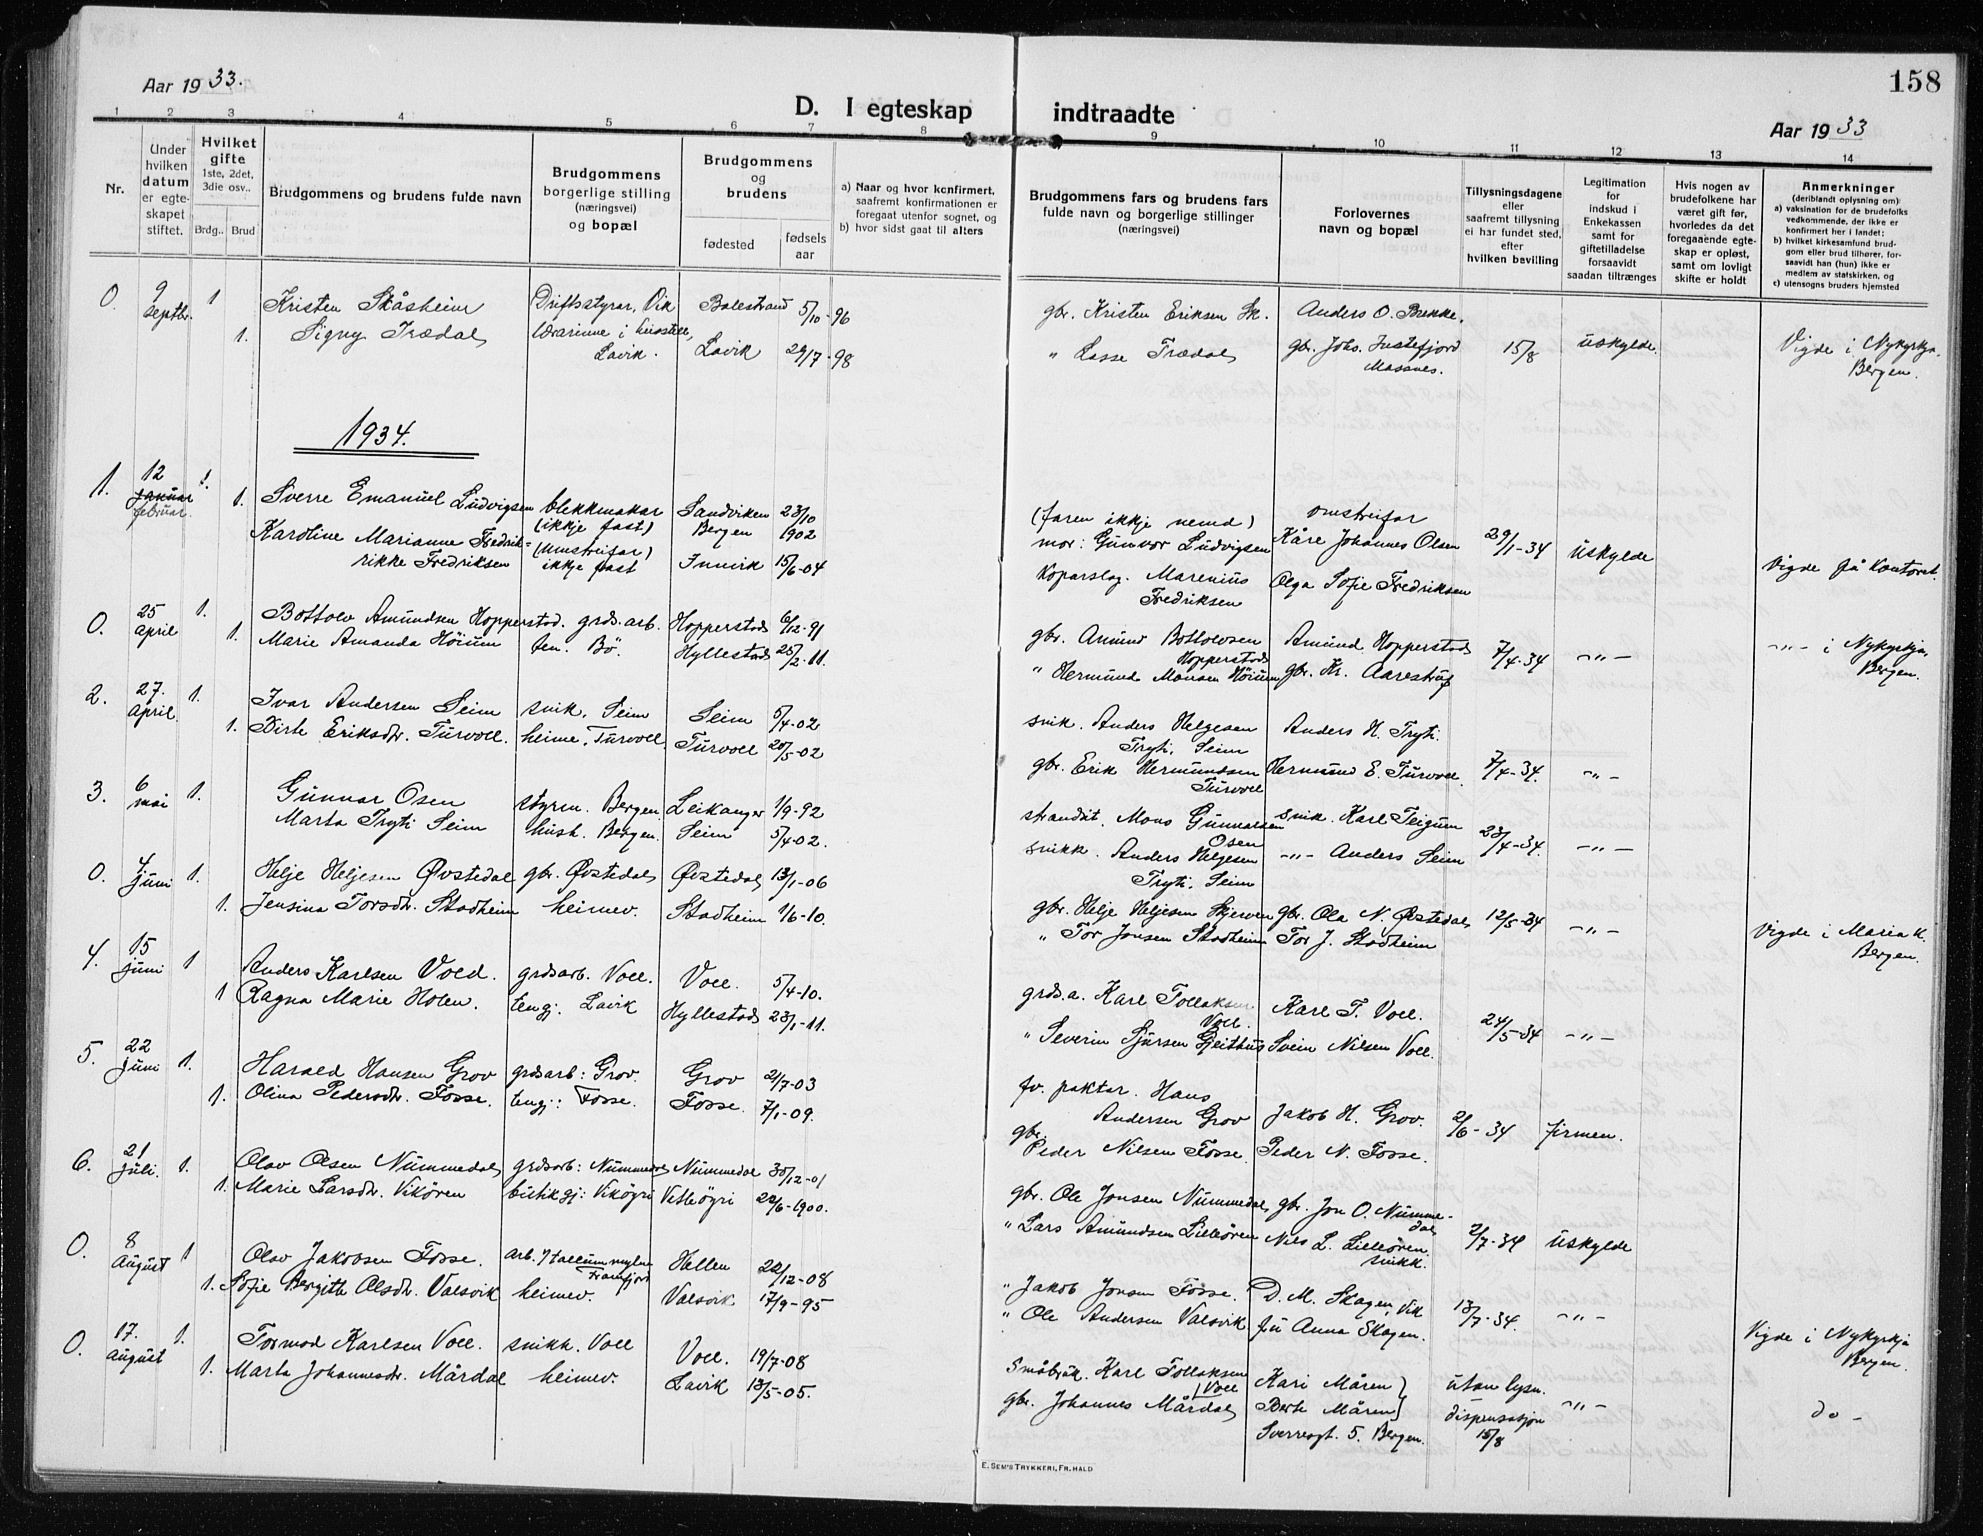 158
Aar 1933.
Aar 1933
D. I egteskap indtraadte
1 2 3 4 5 6 7 8 9 10 11 12 13 14
Nr.
Under hvilken datum er egteskapet stiftet.
Hvilket gifte 1ste, 2det, 3die osv..
Brdg.. Brud
Brudgommens og brudens fulde navn
Brudgommens borgerlige stilling (næringsvei) og bopæl
Brudgommens og brudens
fødested
fødsels aar
a) Naar og hvor konfirmert, saafremt konfirmationen er foregaat utenfor sognet, og
b) hvor sidst gaat til alters
Brudgommens fars og brudens fars fulde navn og borgerlige stillinger (næringsvei)
Forlovernes navn og bopæl
Tillysningsdagene eller saafremt tillysning ei har fundet sted, efter hvilken bevilling
Legitimation for indskud i Enkekassen samt for giftetilladelse forsaavidt saadan tiltrænges
Hvis nogen av brudefolkene har været gift før, hvorledes da det foregaaende egteskap er opløst, samt om lovligt skifte er holdt
Anmerkninger (deriblandt oplysning om)
a) vaksination for de brudefolks vedkommende, der ikke er konfirmert her i landet;
b) hvilket kirkesamfund brudgom eller brud tilhører, forsaavidt han (hun) ikke er medlem av statskirken, og
c) utensogns bruders hjemsted
0. 9 septbr. 1 Kristen Skåsheim Driftsstyrar, Vik Balestrand 5/10-96 gbr. Kristen Eriksen Sk. Anders O. Brekke.
1. Signy Trædal lærarinne i husstell, Lavik. Lavik 29/7-98 " Lasse Trædal gbr. Johs. Massnes. 15/8 uskylde. Vigde i Nykyrkja. Bergen.
1934.
1. 12 januar februar 1. Sverre Emanuel Ludvigsen blekkmakar (ikkje fast) Sandviken Bergen 23/10 1902 (faren ikkje nemd) mor: Gunvor Ludvigsen omstreifar Kåre Johannes Olsen 29/1-34 uskylde Vigde på kontoret.
1. Karoline Marianne Fredrikke Fredriksen (Umstreifar) ikkje fast Innvik 15/6-04 Koparslag. Marenius Fredriksen Olga Sofie Fredriksen
0. 25 april 1. Bottolv Amundsen Hopperstad. grds.arb. Hopperstad 6/12-91 gbr. Amund Bottolvsen Hopperstad Amund Hopperstad 7/4-34 -"- -"- i Nykyrkja, Bergen.
1. Marie Amanda Höium ten. Bö. Hyllestad 25/2-11. " Hermund Monsen Höium gbr. Kr. Aarestrup
2. 27. april 1. Ivar Andersen Seim snik. Seim Seim 5/4-02 snik. Anders Helgesen Tryti, Seim Anders H. Tryti.
1. Birte Eriksdtr. Turvoll. heime. Turvoll Turvoll 20/5-02 gbr. Erik Hermundsen Turvoll Hermund E. Turvoll. 7/4-34. -"-
3. 6 mai 1. Gunnar Osen styrm. Bergen Leikanger 1/9-92 strandsit. Mons Gunnarsen Osen snik. Karl Teigum 23/4-34. -"-
Marta Tryti Seim hush. Bergen. Seim 5/4-02. snikk. Anders Helgesen Tryti, Seim -"- Anders Seim
0. 4 juni 1. Helje Heljesen Øvstedal gbr. Øvstedal Øvstedal 13/1-06 gbr. Helje Heljesen Skjerven gbr. Ola N. Øvstedal 12/5-34 -"- Vigde i Maria k. Bergen.
1. Jensina Torsdtr. Stadheim heimev. Stadheim 1/6-10. " Tor Jonsen Stadheim Tor J. Stadheim
4. 15 juni 1 Anders Karlsen Voll. grdsarb. Voll. Voll. 5/4-10. grds.a. Karl Tollaksen Voll. Karl T. Voll. 24/5-34 -"-
1 Ragna Marie Holen. tengj: Lavik Hyllestad 23/1-11. " Severin Sjursen Geithus Svein Nilsen Voll.
5. 22 juni 1. Harald Hansen Grov grdsarb: Grov. Grov 21/7-03 fv. paktar. Hans Andersen Grov Jakob H. Grov. 2/6-34 firmen.
1. Olina Pedersdtr. Fosse. tengj: Fosse. Fosse. 7/1-09. gbr. Peder Nilsen Fosse. Peder N. Fosse.
6. 21 juli. 1. Olav Olsen Nummedal grdsarb: Nummedal Nummedal 30/12-01 gbr. Ole Jonsen Nummedal gbr. Jon O. Nummedal 2/7-34 uskylde
1. Marie Larsdtr. Vikören butikgj: Vikögri Vetleögri 22/6-1900. " Lars Amundsen Lilleören Nils L. Lilleören. snikk.
0. 8 August 1 Olav Jakobsen Fosse. arb. Framfjord Hellen 22/12-08 " Jakob Jonsen Fosse. D. M. Skagen, Vik 13/7-34. -"- Vigde i Nykyrkja Bergen.
1. Sofie Bergitte Olsdtr. Valsvik heimev. Valsvik 17/9-95 " Ole Andersen Valsvik fru Anna Skagen.
0. 17. august 1. Tormod Karlsen Voll. snikk. Voll Voll. 19/7-08 Småbruk. Karl Tollaksen Voll Kari Måren utan lysn. dispensasjon 15/8 -"- do -
1. Marta Johannesdr. Mårdal heimev. Lavik 13/5-05. gbr. Johannes Mårdal Berte Måren Sverresgt. 5. Bergen.
E. SEM'S TRYKKERI, FR.HALD